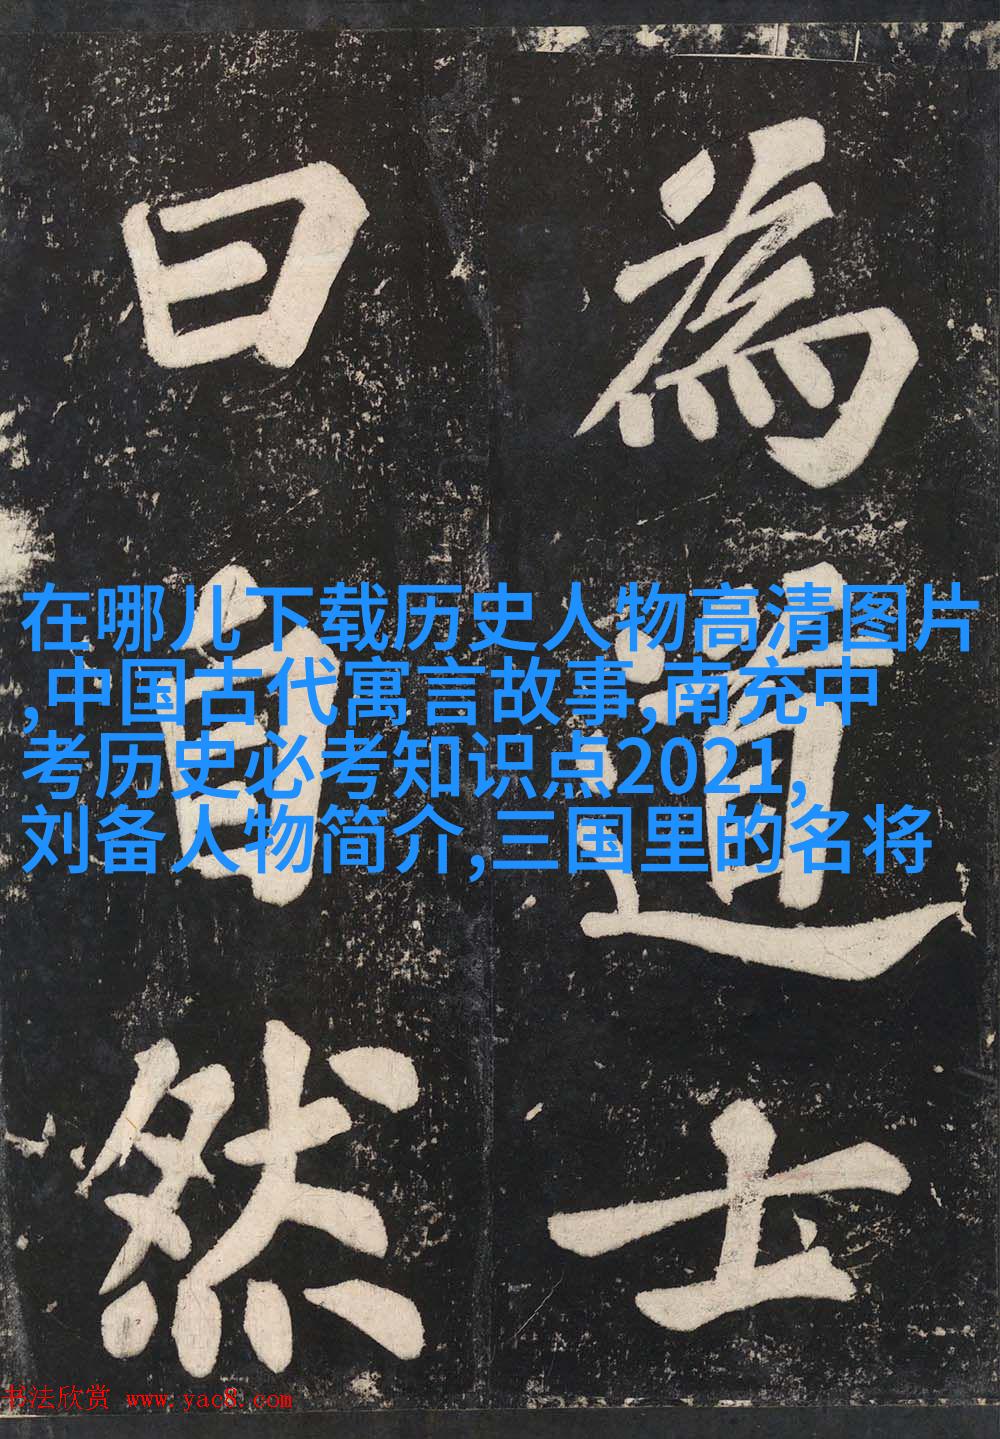 為道士
曰自然
在哪儿下载历史人物高清图片
,中国古代寓言故事,南充中
考历史必考知识点2021,
刘备人物简介,三国里的名将
书法欣赏 www.yac8.com